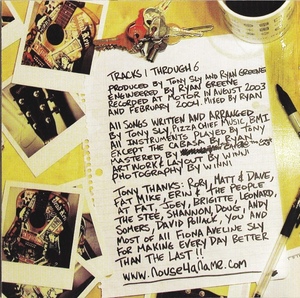 TRACKS 1 THROUGH 6
PRODUCED BY TONY SLY AND RYAN GREENE
ENGINEERED BY RYAN GREENE
RECORDED AT MOTOR IN AUGUST 2003
AND FEBRUARY 2004. MIXED BY RYAN
ALL SONGS WRITTEN AND ARRANGED
BY TONY SLY, PIZZA CHIEF MUSIC, BMI
ALL INSTRUMENTS PLAYED BY TONY
EXCEPT THE CABASA BY RYAN
MASTERED BY
ARTWORK & LAYOUT BY WINNI
PHOTOGRAPHY BY WINNI
TONY THANKS: RORY, MATT & DAVE,
FAT MIKE, ERIN & THE PEOPLE
AT FAT, JOEY, BRIGITTE, LEONARD,
THE STEE, SHANNON, DOUG, ANDY
SOMERS, DAVID POLLACK, YOU AND
MOST OF ALL FIONA AVELINE SLY
FOR MAKING EVERY DAY BETTER
THAN THE LAST!!
WWW.NOUSE4ANAME.COM